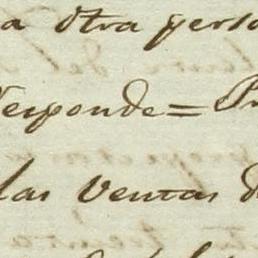 a otra perso
Responde= Pr
las ventas d